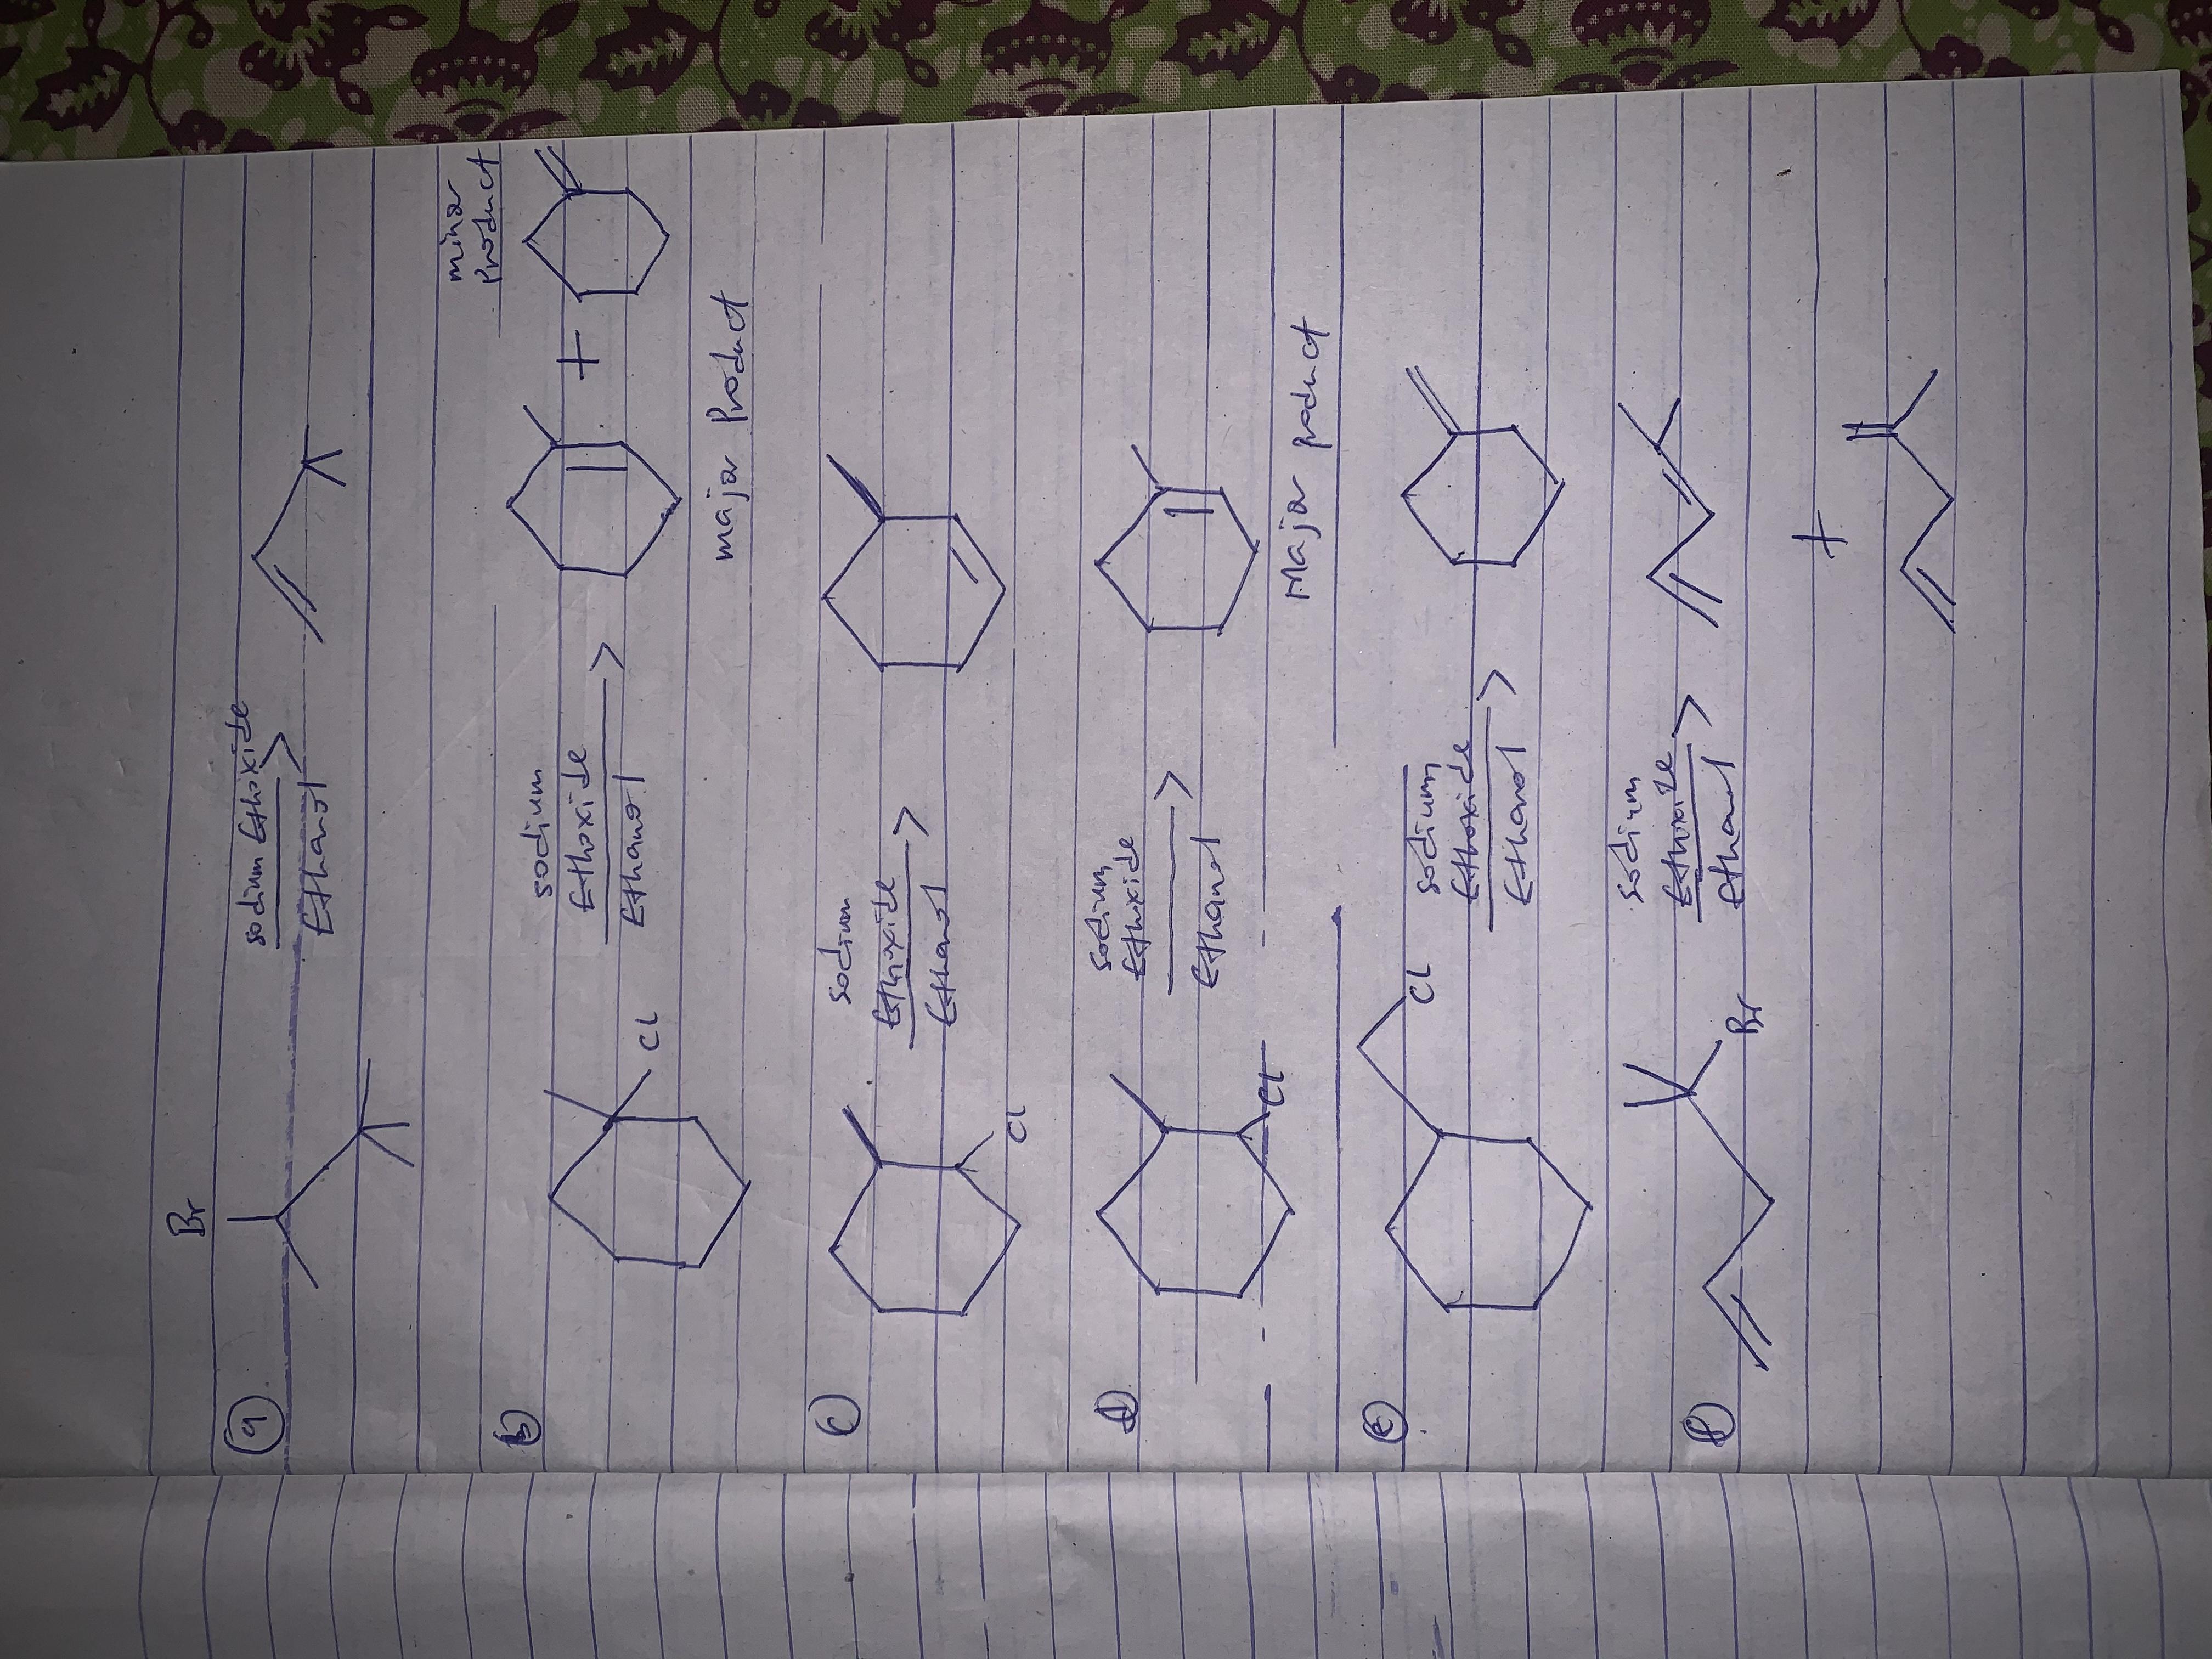 Br
(a) sodium Ethoxide
Ethanol
minor
Product
(b) sodium
Ethoxide
Ethanol
Cl
+
major Product
(c) sodium
Ethoxide
Ethanol
Cl
(d) sodium
Ethoxide
Ethanol
Cl
Major product
(e) Cl
sodium
Ethoxide
Ethanol
(f) Br
sodium
Ethoxide
Ethanol
+